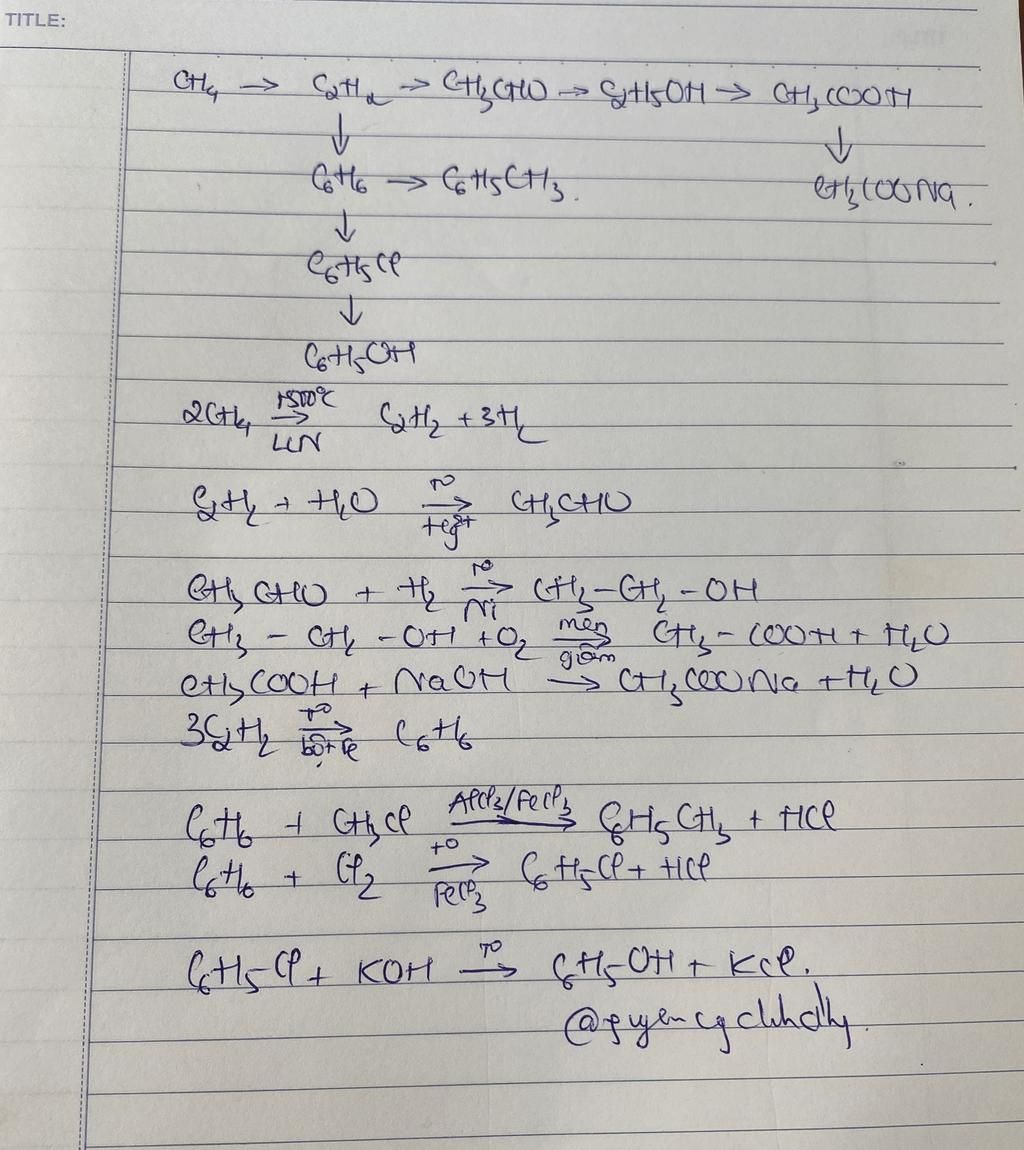 TITLE:
CH₄ → C₂H₂ → CH₃CHO → C₂H₅OH → CH₃COOH
↓ ↓
C₆H₆ → C₆H₅CH₃. CH₃COONa.
↓
C₆H₅Cl
↓
C₆H₅OH
2CH₄ 1500°C → LLN C₂H₂ + 3H₂
C₂H₂ + H₂O t° → Hg²⁺ CH₃CHO
CH₃CHO + H₂ t° → Ni CH₃-CH₂-OH
CH₃-CH₂-OH + O₂ men → giấm CH₃-COOH + H₂O
CH₃COOH + NaOH → CH₃COONa + H₂O
3C₂H₂ t° → bột C C₆H₆
C₆H₆ + CH₃Cl AlCl₃/FeCl₃ → C₆H₅CH₃ + HCl
C₆H₆ + Cl₂ t° → FeCl₃ C₆H₅Cl + HCl
C₆H₅Cl + KOH t° → C₆H₅OH + KCl.